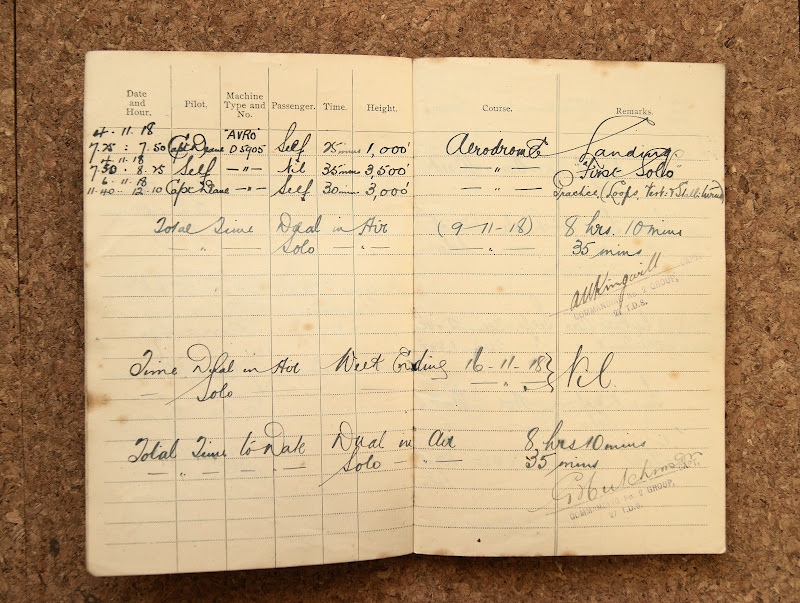 Date and Hour. Pilot. Machine Type and No. Passenger. Time. Height. Course. Remarks.
4.11.18 "AVRO"
7.25 : 7.50 Capt Deane D5905 Self 25 mins 1,000' Aerodrome Landings
4.11.18
7.50 : 8.25 Self —"— Nil 35 mins 3,500' — " — "First Solo"
6.11.18
11.40 : 12.10 Capt Deane —"— Self 30 mins 3,000' — " — Practice (Loops,
Total Time Dual in Air (9-11-18) 8 hrs. 10 mins
— " — Solo — " — — " — 35 mins
AWKingwill
COMMANDING No. 2 GROUP,
T.D.S.
Time Dual in Air Week Ending 16-11-18 } Nil.
— Solo — " —
Total Time to Date Dual in Air 8 hrs 10 mins
— " — Solo — " — 35 mins
CAPT.
COMMANDING No. 2 GROUP,
T.D.S.